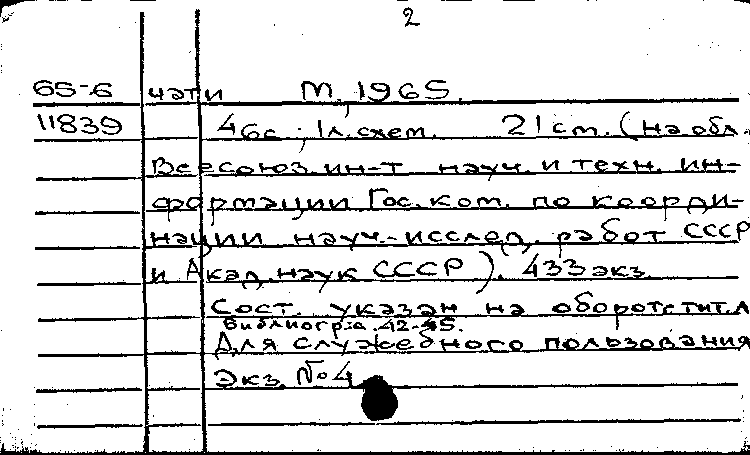 2
65-6 чати М., 1965.
11839 46с.; 1л.схем. 21 cm. (На обл.
Всесоюз. ин-т науч. и техн. ин-
формации Гос. ком. по коорди-
нации науч.-исслед. работ СССР
и Акад. наук СССР). 433 экз.
Сост. указан на обороте тит. л
Библиогр: с. 42-45.
Для служебного пользования
Экз. №4